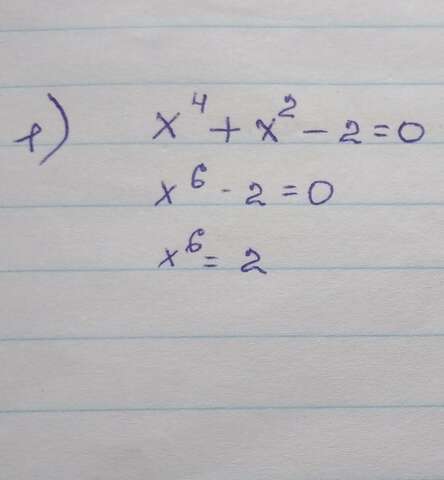 1) x⁴ + x² - 2 = 0
x⁶ - 2 = 0
x⁶ = 2